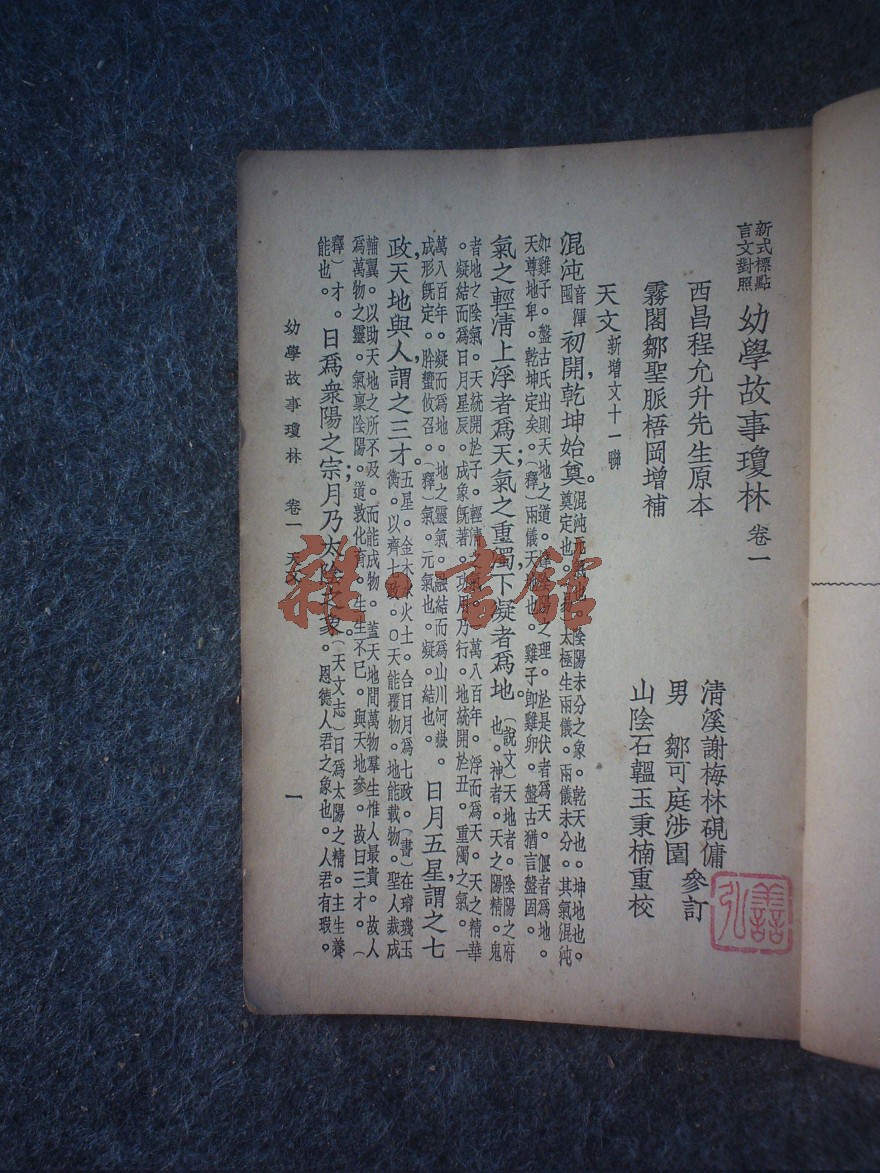 新式標點
言文對照
幼學故事瓊林 卷一
西昌程允升先生原本
霧閣鄒聖脈梧岡增補
清溪謝梅林硯傭
男 鄒可庭涉園
參訂
山陰石韞玉秉楠重校
天文 新增文十一聯
混沌音渾囤初開,乾坤始奠。混沌元氣也。陰陽未分之象。乾天也。坤地也。奠定也。太極生兩儀。兩儀未分。其氣混沌
如雞子。盤古氏出則天地之道。之理。於是伏者為天。偃者為地。天尊地卑。乾坤定矣。(釋)兩儀天也。雞子即雞卵。盤古猶言盤固。
氣之輕清上浮者爲天;氣之重濁下凝者爲地。(說文)天地者。陰陽之府也。神者。天之陽精。鬼
者地之陰氣。天統開於子。輕清之萬八百年。浮而爲天。天之精華。凝結而爲日月星辰。成象既著。功用乃行。地統開於丑。重濁之氣。一
萬八百年。凝而爲地。地之靈氣。融結而爲山川河嶽。成形既定。肸蠁攸召。(釋)氣。元氣也。凝。結也。
日月五星,謂之七
政,天地與人,謂之三才。五星。金木水火土。合日月爲七政。(書)在璿璣玉衡。以齊七政。○天能覆物。地能載物。聖人裁成
輔翼。以助天地之所不及。而能成物。蓋天地間萬物羣生惟人最貴。故人爲萬物之靈。氣稟陰陽。道敦化育。生生不已。與天地參。故曰三才。(
釋)才。能也。
日爲衆陽之宗;月乃太陰之象。(天文志)日爲太陽之精。主生養恩德。人君之象也。人君有瑕。
幼學故事瓊林 卷一 天文 一
雜·書館